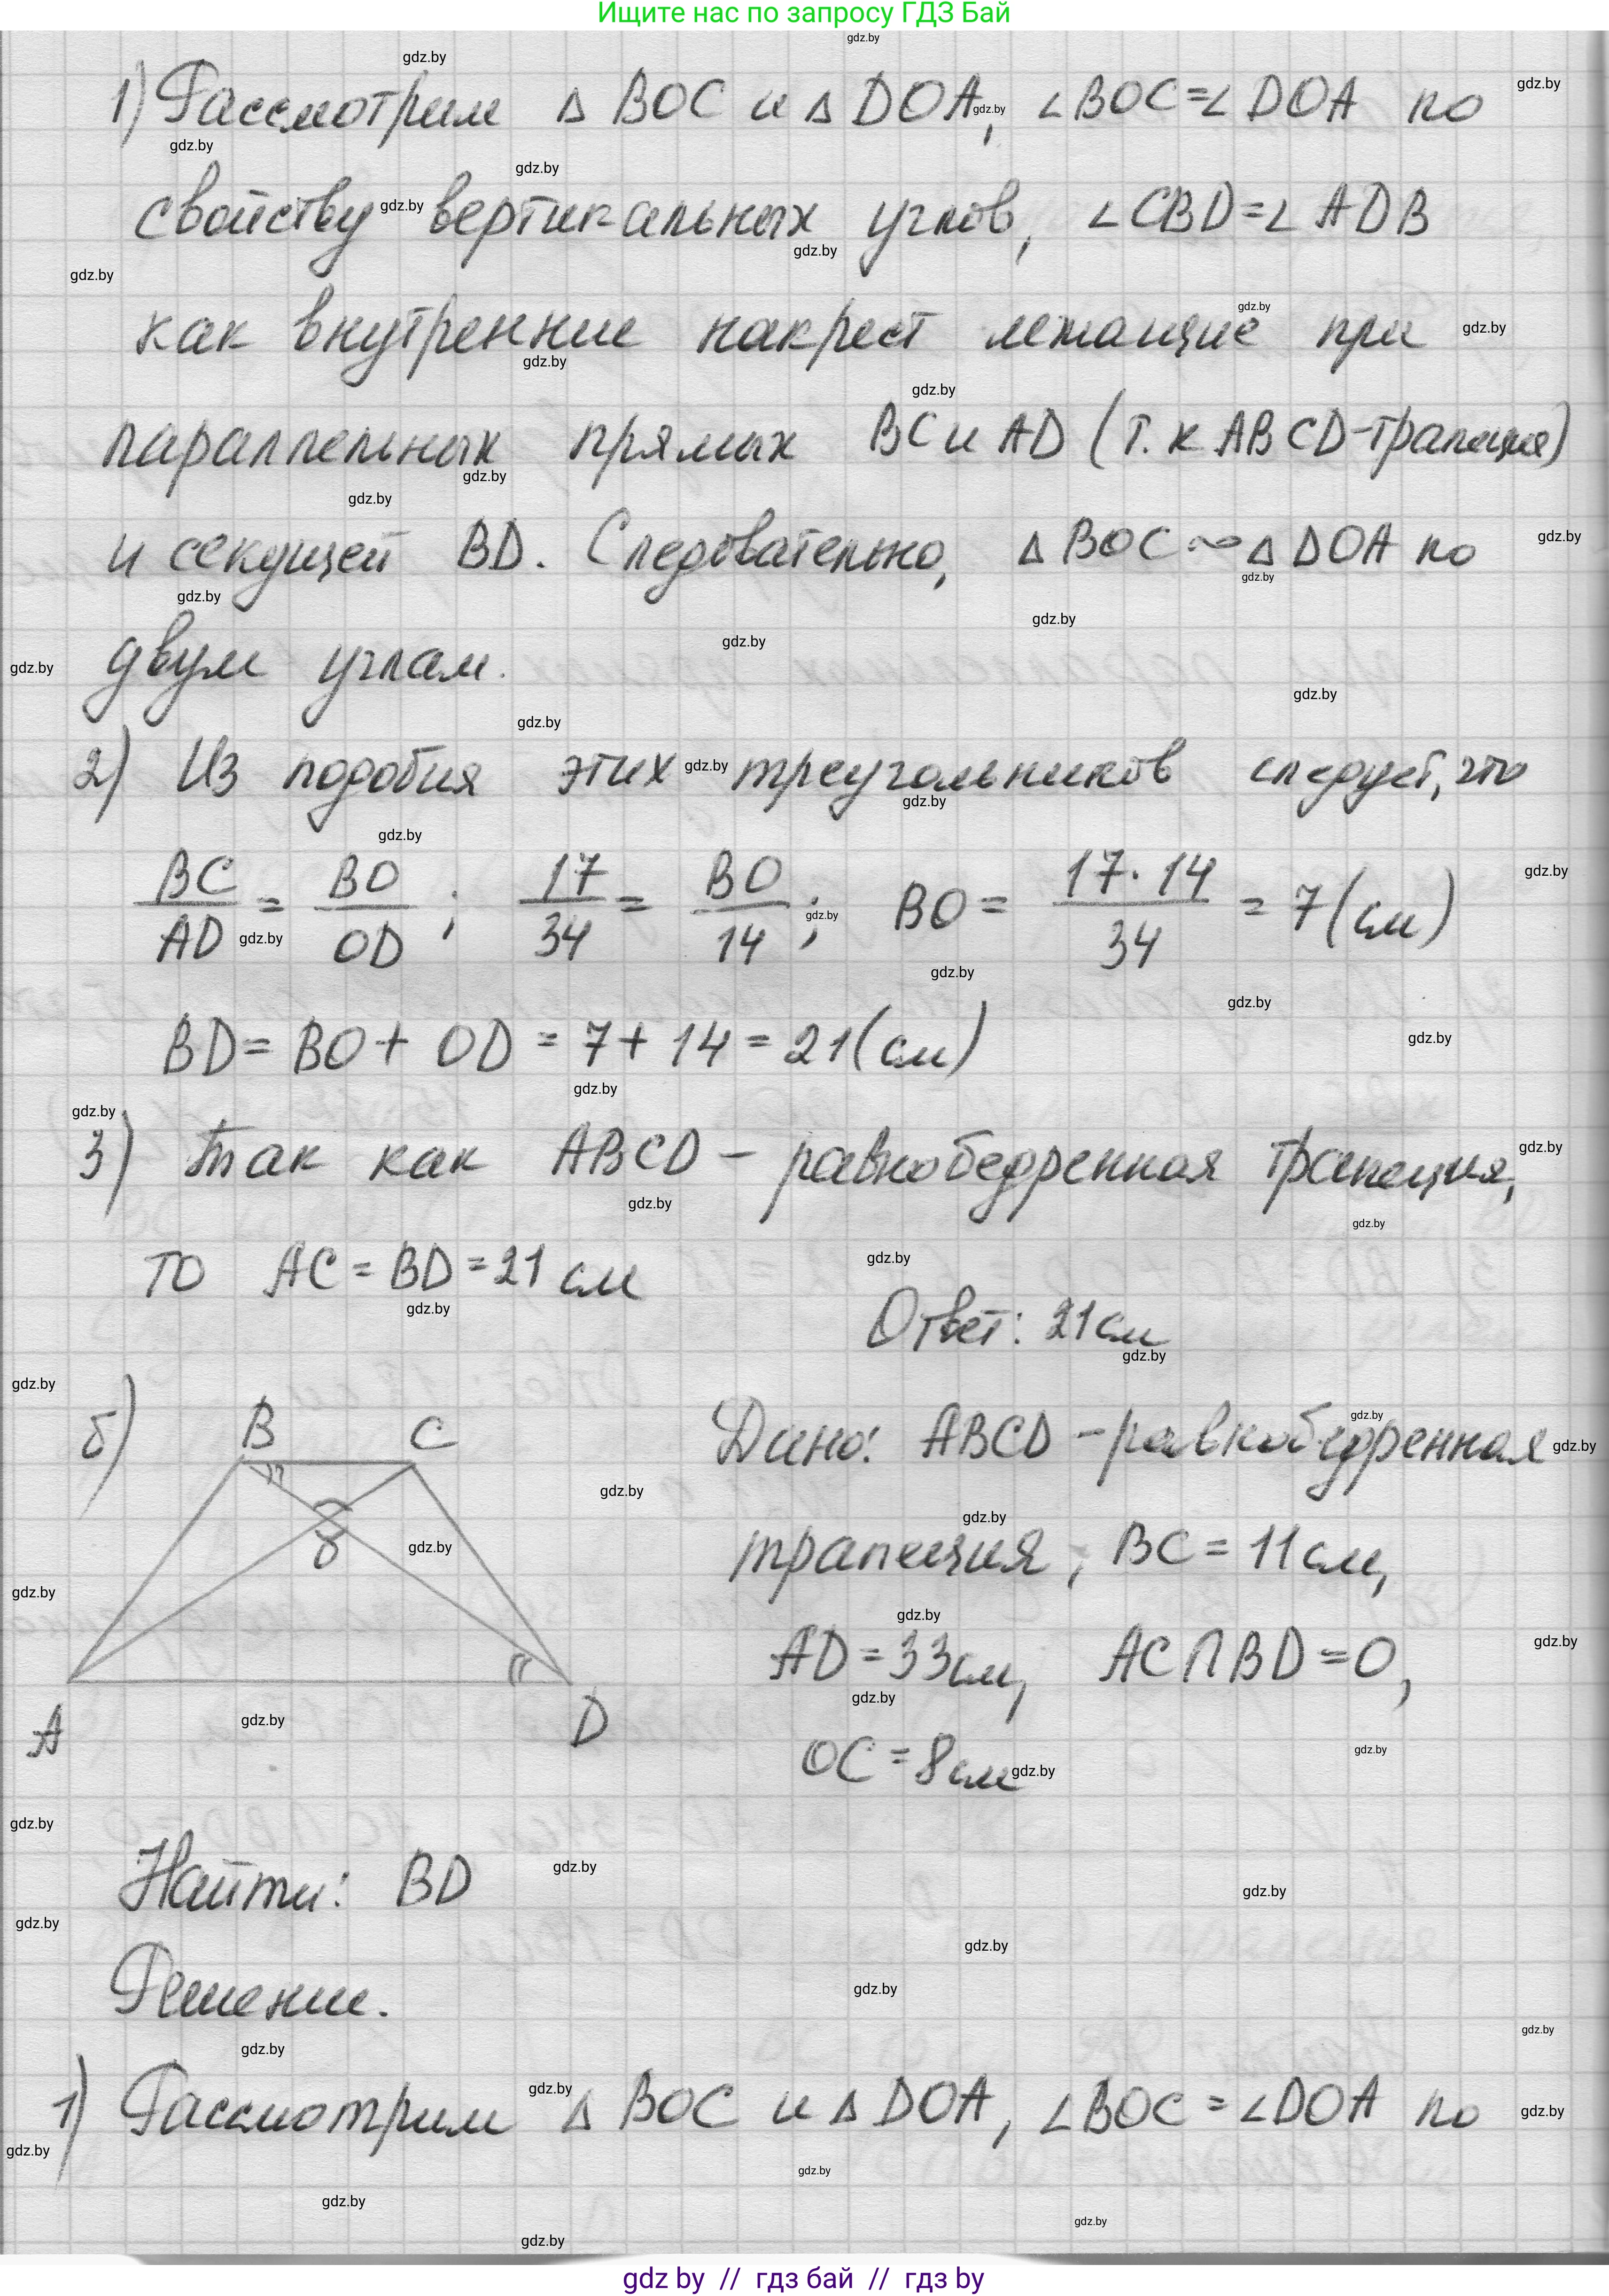 Ищите нас по запросу ГДЗ Бай
1) Рассмотрим △ BOC и △ DOA, ∠BOC=∠DOA по
свойству вертикальных углов, ∠CBD=∠ADB
как внутренние накрест лежащие при
параллельных прямых BC и AD (т.к ABCD-трапеция)
и секущей BD. Следовательно, △ BOC ∾ △ DOA по
двум углам.
2) Из подобия этих треугольников следует, что
BC/AD = BO/OD ; 17/34 = BO/14 ; BO = 17·14/34 = 7(см)
BD= BO+ OD = 7+ 14 = 21(см)
3) Так как ABCD – равнобедренная трапеция,
то AC = BD = 21 см
Ответ: 21см
б) B C
8
A D
Дано: ABCD – равнобедренная
трапеция, BC = 11см,
AD = 33см, AC∩BD=O,
OC = 8см
Найти: BD
Решение.
1) Рассмотрим △ BOC и △ DOA, ∠BOC = ∠DOA по
gdz by // гдз бай // гдз by